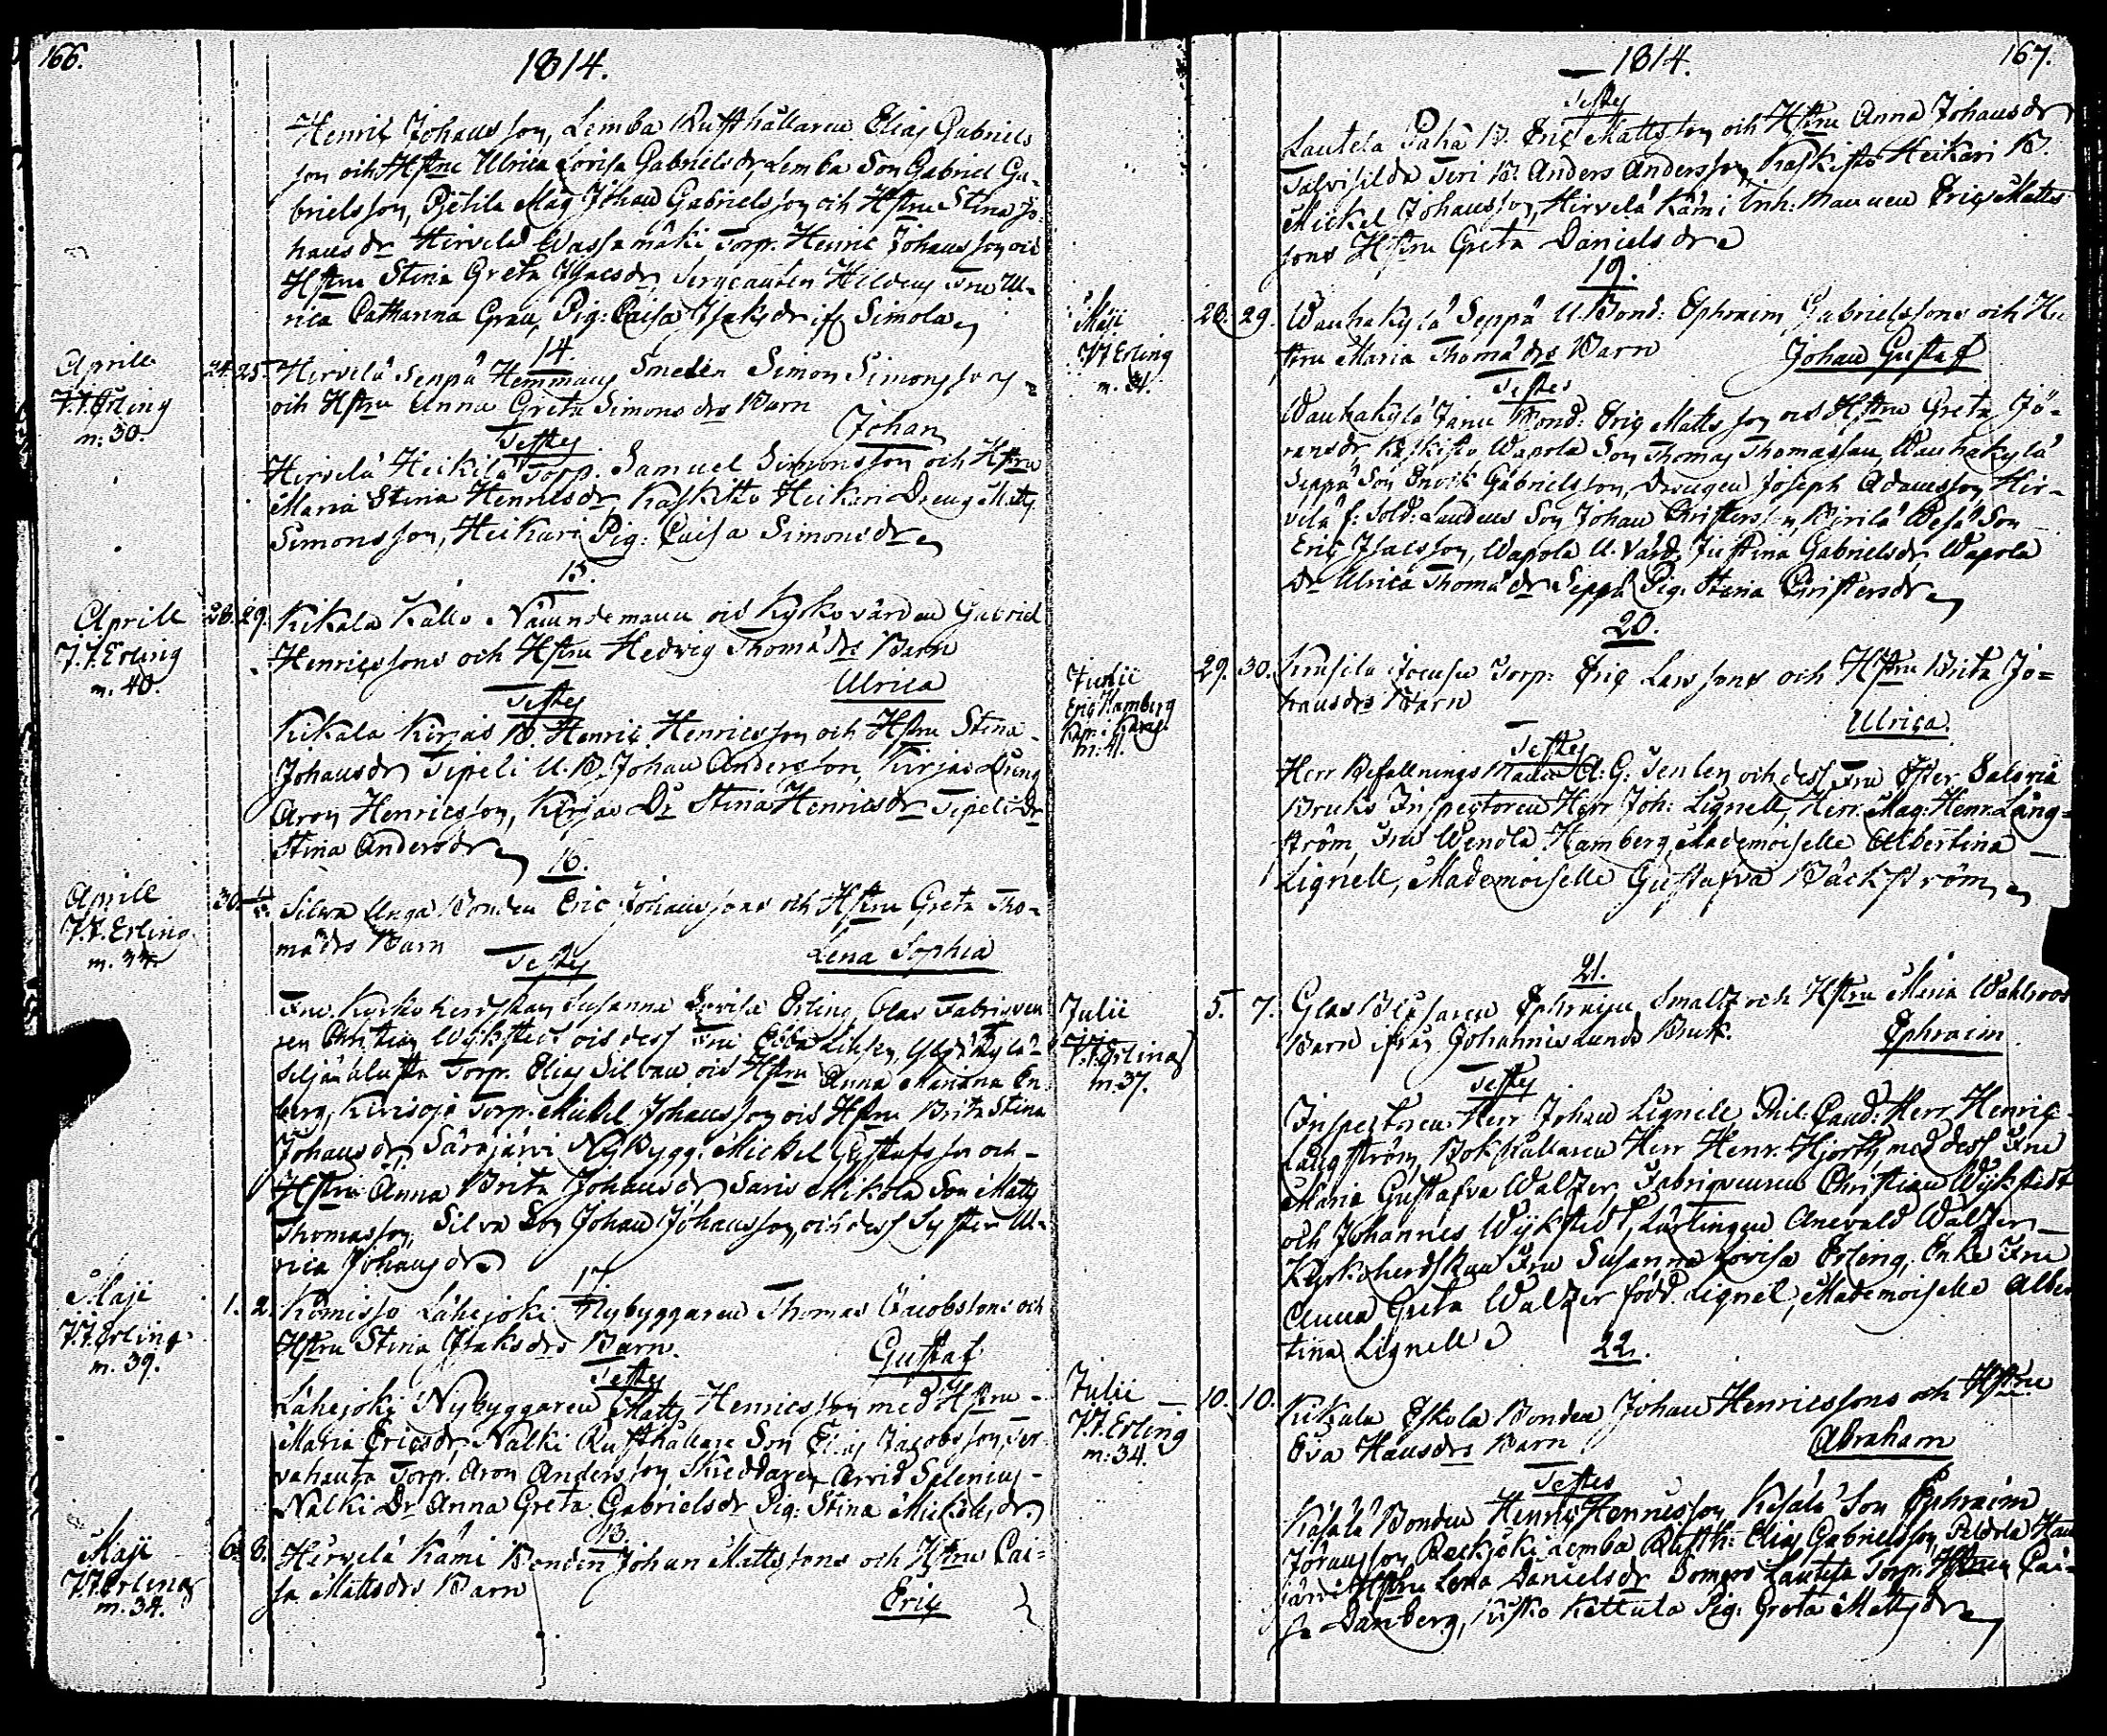 166.
1814.
Henric Johansson, Lemba Rusthållaren Elias Gabriels
son och Hstru Ulrica Lovisa Gabrielsdr, Lemba Son Gabriel Ga-
brielsson, Pietilä Måg Johan Gabrielsson och Hstru Stina Jo-
hansdr Hirvelä Wassamäki Torp. Henric Johansson och
Hstru Stina Greta Isacsdr, Sergeanten Fru Ul-
rica Catharina Grau, Pig: Caisa Isaksdr if Simola
14.
Aprill 24. 25. Hirvelä Seppä Hemmans Smeden Simon Simonssons
J.J. Erling och Hstru Anna Greta Simonsdrs Barn
m: 30. Johan
Testes
Hirvelä Heikilä Torp. Samuel Simonsson och Hstru
Maria Stina Henricsdr, Kaskisto Heikari Dreng Matts
Simonsson, Heikari Pig: Caisa Simonsdr
15.
Aprill 28. 29. Kikala Kallo Nämndemann och Kyrkovärden Gabriel
J.J. Erling Henricssons och Hstru Hedvig Thomædrs Barn
m. 40. Ulrica
Testes
Kikala Kirjas B. Henric Henricsson och Hstru Stina
Johansdr Tipeli U.B. Johan Andersson, Kirjas Dreng
Aron Henricsson, Kirjas Dr Stina Henricsdr Tipeli Dr
Stina Andersdr
16.
Aprill 30. 1/5. Silva Unga Bonden Eric Johanssons och Hstru Greta Tho-
J.J. Erling mædrs Barn
m. 33. Lena Sophia
Testes
Fru Kyrkoherdskan Susanna Lovisa Erling, Glas Fabriqveu
ren Christian Wijkstedt och dess Fru Ebba
Torp. Elias Silvan och Hstru Anna Mariana En
berg, Kivisoja Torp. Mickel Johansson och Hstru Brita Stina
Johansdr, Särkjärvi Nybygg: Mickel Gustafsson och
Hstru Anna Brita Johansdr Saris Mikola Son Matts
Thomasson, Silva Son Johan Johansson, och dess Syster Ul-
rica Johansdr
17.
Maji 1. 2. Komisso Lähejoki Nybyggaren Thomas Jacobssons och
J.J. Erling Hstru Stina Isaksdrs Barn.
m. 39. Gustaf
Testes
Lähejoki Nybyggaren Matts Henricsson med Hstru
Maria Ericsdr, Nälki Rusthållare Son Elias Jacobsson, Ter-
vahauta Torp. Aron Andersson Skreddaren Arvid Selenius
Nälki Dr Anna Greta Gabrielsdr Pig: Stina Mickelsdr
18.
Maji 6. 8. Hirvelä Kämi Bonden Johan Mattssons och Hstru Cai-
J.J. Erling sa Mattsdrs Barn
m. 34. Eric
1814.
167.
Testes
Lautela Paha B. Eric Mattsson och Hstru Anna Johansdr
Talvisilda Teri B. Anders Andersson, Kaskisto Heikari B.
Mickel Johansson, Hirvelä Kämi Inh: Mannen Eric Matts
sons Hstru Greta Danielsdr
19.
Maji 28. 29. Wauhakylä Seppä U. Bond: Ephraim Gabrielssons och Hu
J.J. Erling stru Maria Thomædrs Barn
m. 24. Johan Gustaf
Testes
Wauhakylä Janu Bond: Eric Mattsson och Hstru Greta Jö-
ransdr Kaskisto Wapola Son Thomas Thomasson, Wauhakylä
Seppä Son Enock Gabrielsson, Drengen Joseph Adamsson Hir-
velä f: Sold: Landens Son Johan Christersson, Pirilä Besä Son
Eric Isacsson, Wapola U. Värd: Justina Gabrielsdr, Wapola
Dr Ulrica Thomædr Seppä Pig. Stina Christersdr
20.
Junii 29. 30. Kinsila Torp: Eric Larssons och Hstru Brita Jo-
Eric Hamberg hansdrs Barn
m. 41. Ulrica
Testes
Herr BefallningsMannen A: G: Tenlen och dess Fru Ester Salovia
Bruks Inspectoren Herr Joh: Lignell, Herr Mag: Henr. Lång-
ström, Fru Wendla Hamberg, Mademoiselle Albertina
Lignell, Mademoiselle Gustafva Bäckström
21.
Julii 5. 7. Glas Blåsaren Ephraim Smaltz och Hstru Maria Wahlroos
J.J. Erling Barn ifrån Johannislunds Bruk.
m. 37. Ephraim
Testes
Inspectoren Herr Johan Lignell, Phil: Cand: Herr Henric
Långström, Bokhållaren Herr Henr. Hjorth, med dess Fru
Maria Gustafva Waltzer, Fabriqveuren Christian Wijkstedt
och Johannes Wijkstedt, Lärlingen Anevald Waltzer
Kyrkoherdskan Fru Susanna Lovisa Erling, Enke Fru
Anna Greta Waltzer född Lignel, Mademoiselle Alber
tina Lignell
22.
Julii 10. 10. Kikala Eskola Bonden Johan Henricssons och Hstru
J.J. Erling Eva Hansdrs Barn
m: 34. Abraham
Testes
Kasälä Bonden Henric Henricsson, Kesälä Son Ephraim
Jöransson Lemba Rusth: Elias Gabrielsson,
Hstru Lena Danielsdr Somero Lautela Torp: Hstru Cai-
sa Danberg, Kisko Kettula Pig. Greta Mattsdr